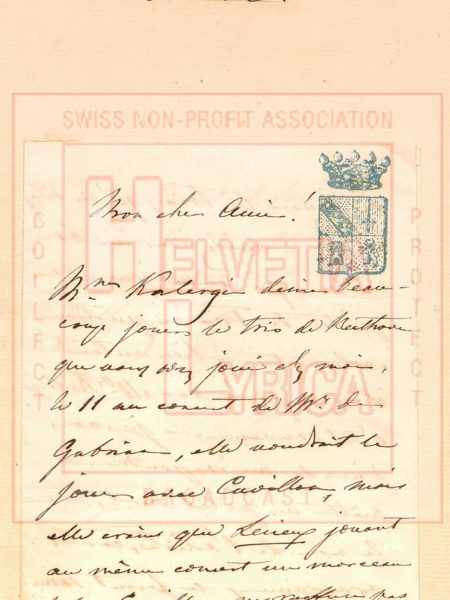 SWISS NON-PROFIT ASSOCIATION
COLLECT
PROTECT
HELVETIA
LYRICA
BROADCAST
Mon cher Ami!
Mme Kalergis désire beau-
coup jouer le trio de Beethoven
que vous avez joué chez moi,
le 11 au concert de Mr de
elle voudrait le
jouer avec mais
elle craint que jouant
au même concert un morceau
pas